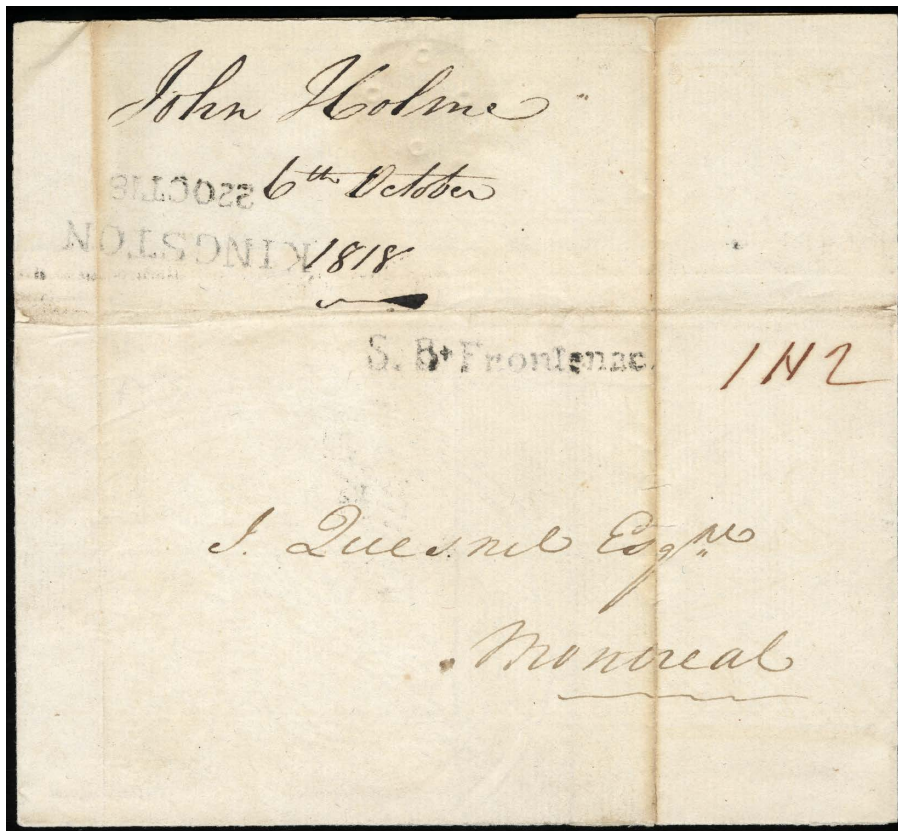 John Holme
6th October
1818
KINGSTON
S. Bt Frontenac.
1 N 2
J. Quesnel Esqre
Montreal